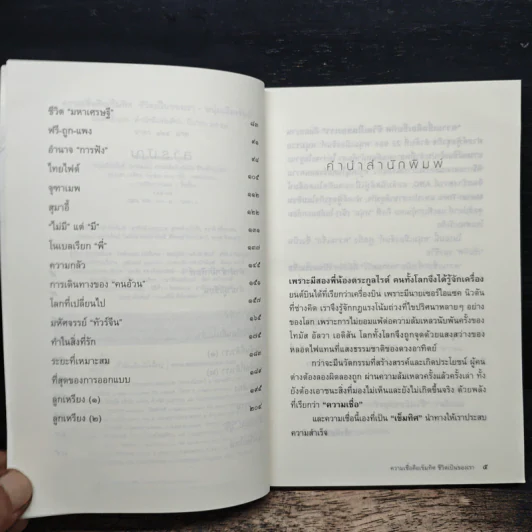 ชีวิต "มหาเศรษฐี" ๘๓
ฟรี-ถูก-แพง ๙๑
อำนาจ "การฟัง" ๙๙
ไทยไฟต์ ๑๐๕
จุฑาเมพ ๑๑๒
สุมาอี้ ๑๒๒
"ไม่มี" แต่ "มี" ๑๓๐
โนเบลเรียก "พี่" ๑๓๗
ความกลัว ๑๔๕
การเดินทางของ "คนอ้วน" ๑๕๐
โลกที่เปลี่ยนไป ๑๕๗
มหัศจรรย์ "ทัวร์จีน"
ทำในสิ่งที่รัก ๑๗๕
ระยะที่เหมาะสม
ที่สุดของการออกแบบ
ลูกเหรียง (๑) ๑๙๕
ลูกเหรียง (๒) ๒๐๔
คำนำสำนักพิมพ์
เพราะมีสองพี่น้องตระกูลไรต์ คนทั้งโลกจึงได้รู้จักเครื่อง
ยนต์บินได้ที่เรียกว่าเครื่องบิน เพราะมีนายเซอร์ไอแซค นิวตัน
ที่ช่างคิด เราจึงรู้จักกฎแรงโน้มถ่วงที่ไขปริศนาหลายๆ อย่าง
ของโลก เพราะการไม่ยอมแพ้ต่อความล้มเหลวนับพันครั้งของ
โทมัส อัลวา เอดิสัน โลกทั้งโลกจึงถูกจุดด้วยแสงสว่างของ
หลอดไฟแทนที่แสงธรรมชาติของดวงอาทิตย์
กว่าจะมีนวัตกรรมที่สร้างสรรค์และเกิดประโยชน์ ผู้คน
ต่างต้องลองผิดลองถูก ผ่านความล้มเหลวครั้งแล้วครั้งเล่า ทั้ง
ยังต้องเอาชนะสิ่งที่มองไม่เห็นและยังไม่เกิดขึ้นจริง ด้วยพลัง
ที่เรียกว่า "ความเชื่อ"
และความเชื่อนี้เองที่เป็น "เข็มทิศ" นำทางให้เราประสบ
ความสำเร็จ
ความเชื่อคือเข็มทิศ ชีวิตเป็นของเรา ๕